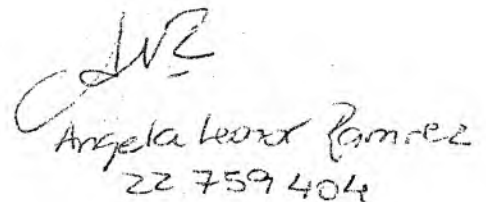 Angela Leonor Ramirez
22 759 404